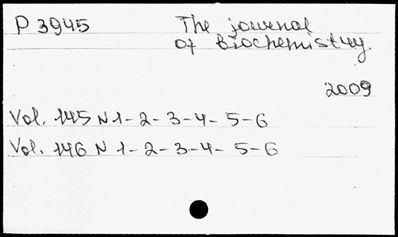 P 3945 The journal
of Biochemistry.
2009
Vol. 145 N 1-2-3-4-5-6
Vol. 146 N 1-2-3-4-5-6